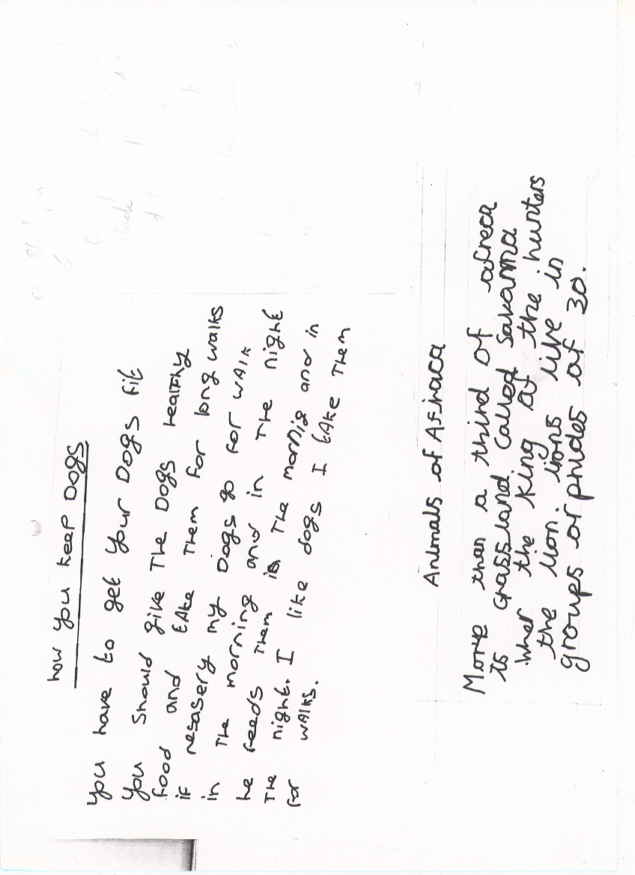 how you keep Dogs
you have to get your Dogs fit
you should give The Dogs healthy
food and take Them for long walks
if nesasery my Dogs go for walk
in The morning and in The night
he feeds Them in The mornig and in
The night. I like dogs I take Them
for walks.
Animals of Afraca
More than a third of afreca
is grass land called Savanna
wher the king of the hunters
the lion. lions live in
groups or prides of 30.